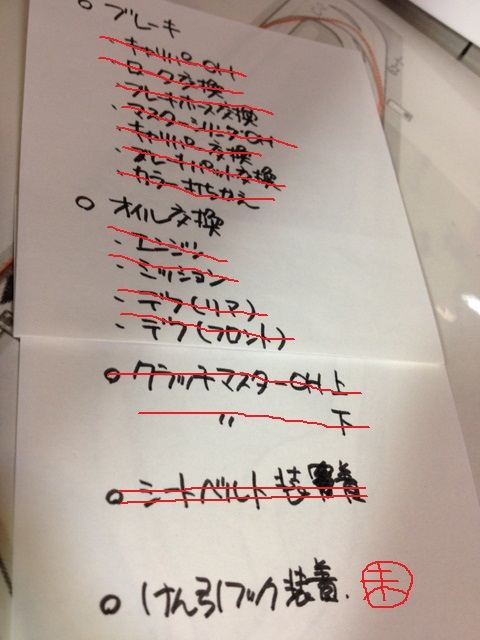 ○ ブレーキ
・キャリパーOH
・ローター交換
・ブレーキホース交換
・マスターシリンダOH
・キャリパー交換
・ブレーキパット交換
・カラー打ちかえ
○ オイル交換
・エンジン
・ミッション
・デフ(リア)
・デフ(フロント)
○ クラッチマスターOH 上
〃 下
○ シートベルト装着
○ けん引フック装着. 未